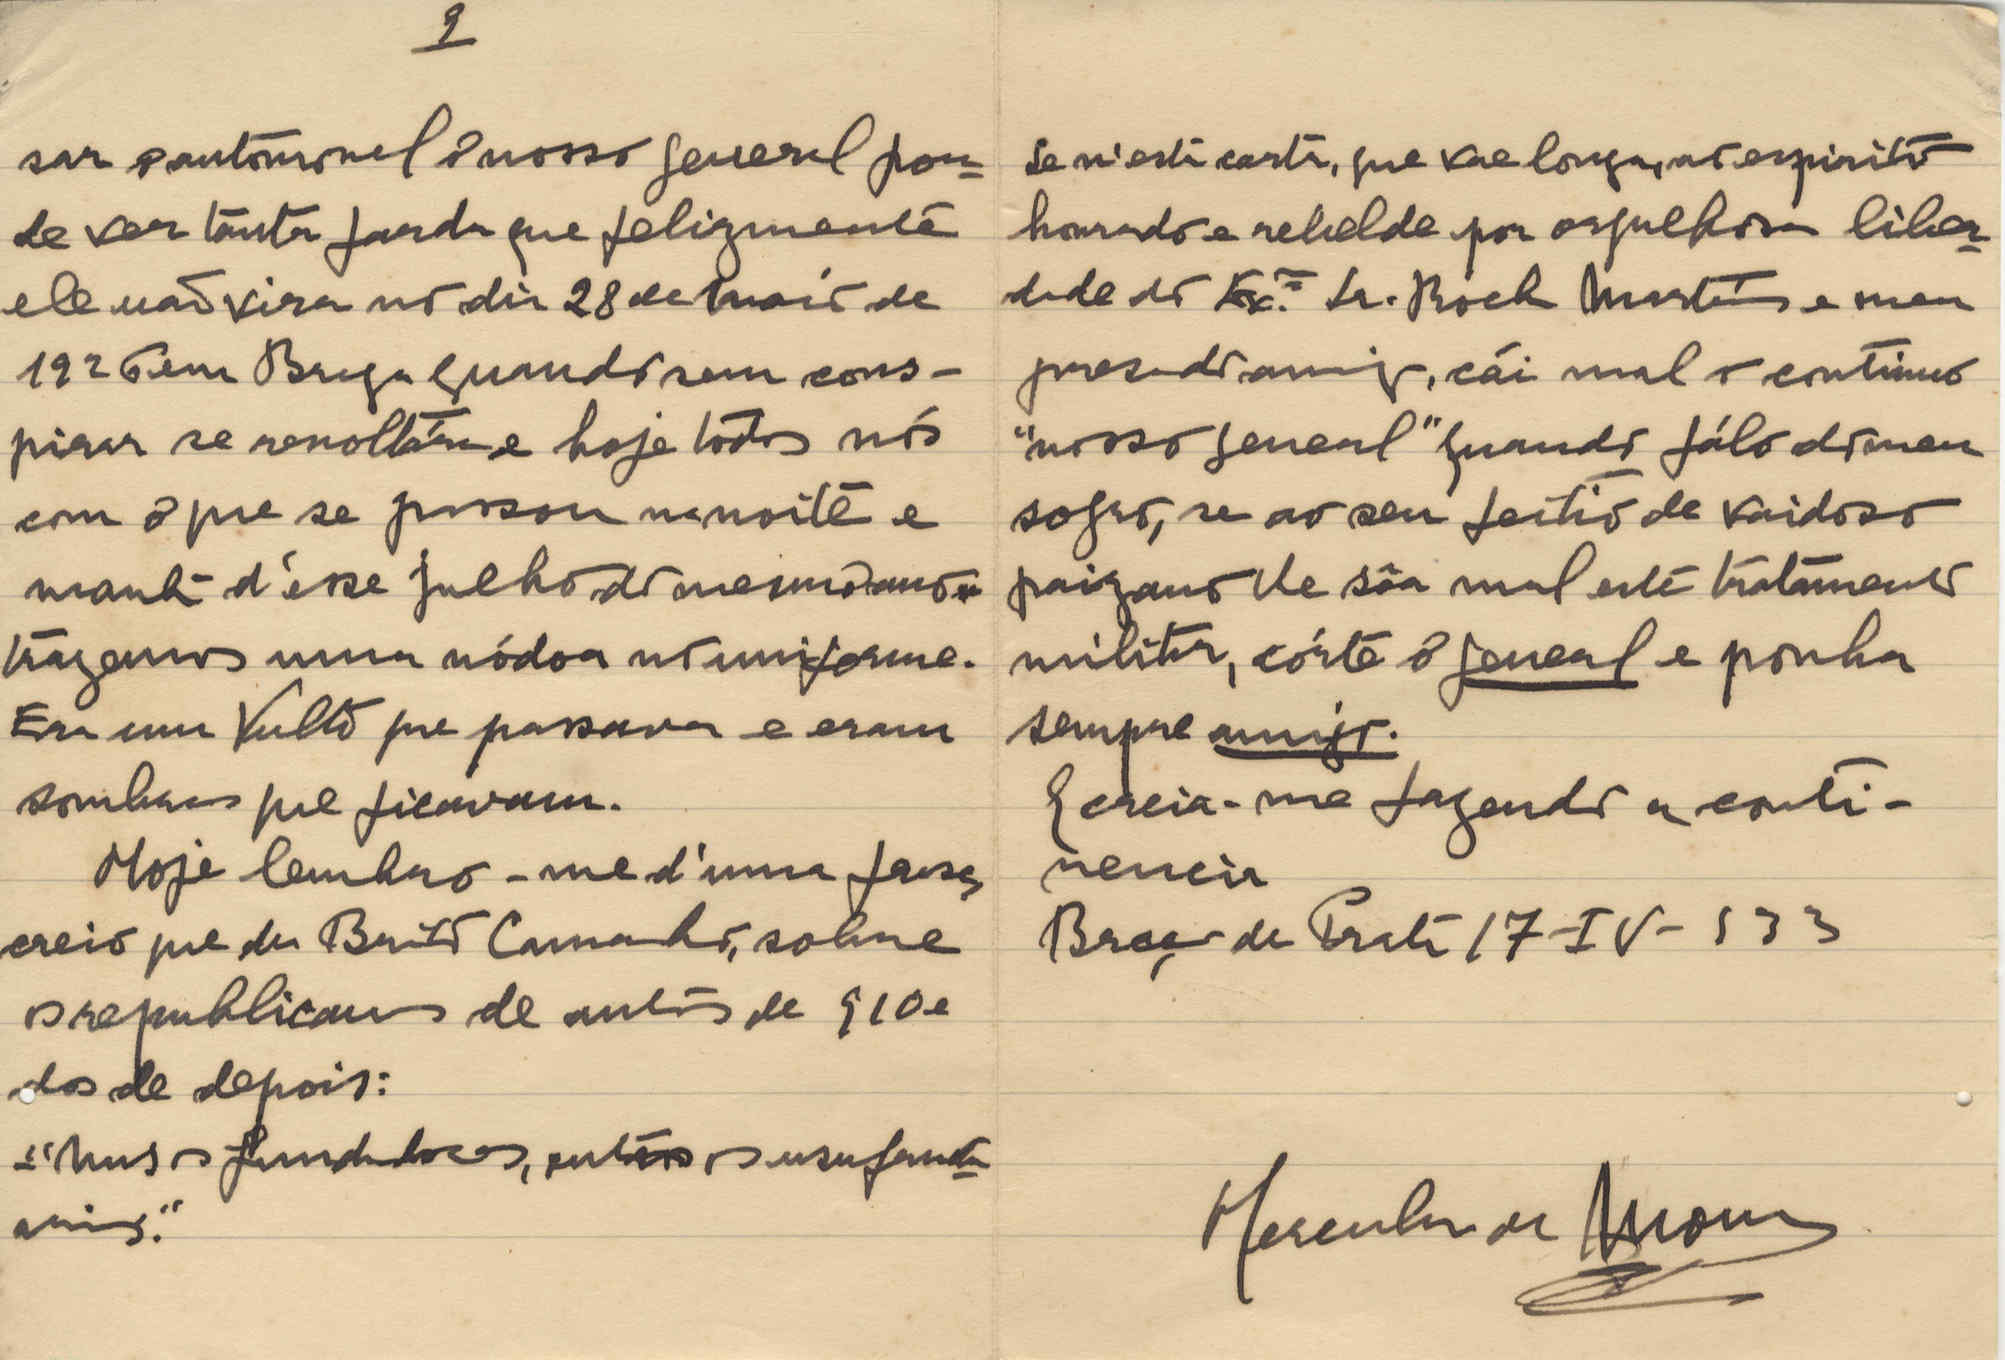 9
sar o automovel o nosso general pou=
de ver tanta farda que felizmente
ele não vira no dia 28 de Maio de
1926 em Braga quando sem cons-
pirar se revoltára e hoje todos nós
com o que se passou na noite e
manhã d'esse Julho do mesmo ano
trazemos uma nódoa no uniforme.
Era um Vulto que passava e eram
sombras que ficavam.
Hoje lembro-me d'uma frase,
creio que de Brito Camacho, sobre
os republicanos de antes de 910 e
dos de depois:
"Uns os fundadores, outros os usufrutu=
arios."
Se n'esta carta, que vae longa, ao espirito
honrado e rebelde por orgulhosa liber=
dade do Exmo Sr. Roch Martins e meu
presado amigo, cái mal o continuo
"nosso general" quando fálo do meu
sogro, se ao seu feitio de vaidoso
paizano lhe sôa mal este tratamento
militar, córte o general e ponha
sempre amigo.
E creia-me fazendo a conti-
nencia
Braço de Prata 17-IV-933
Hercula de Moura